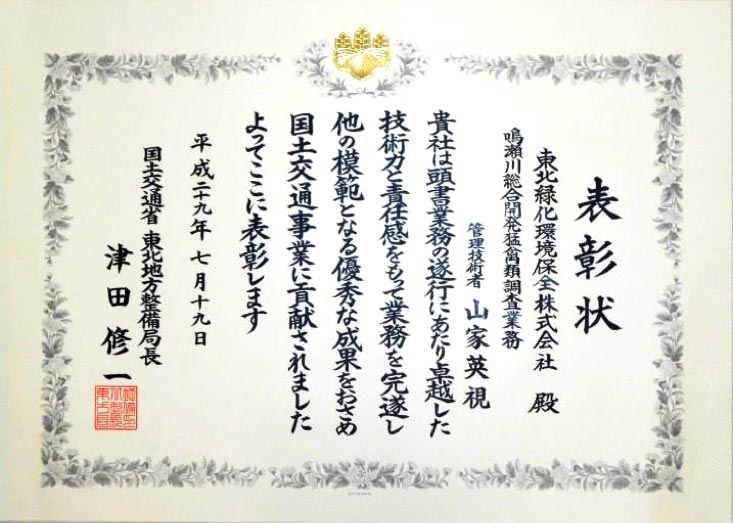 表彰状
東北緑化環境保全株式会社 殿
鳴瀬川総合開発猛禽類調査業務
管理技術者 山家英視
貴社は頭書業務の遂行にあたり卓越した
技術力と責任感をもって業務を完遂し
他の模範となる優秀な成果をおさめ
国土交通事業に貢献されました
よってここに表彰します
平成二十九年七月十九日
国土交通省 東北地方整備局長
津田修一